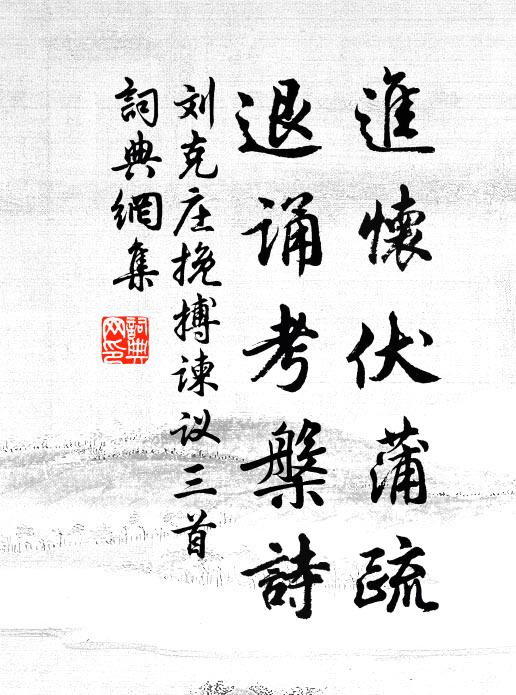 進懷伏蒲疏
退誦考槃詩
刘克庄挽摶谏议三首
詞典網集
詞典
网印